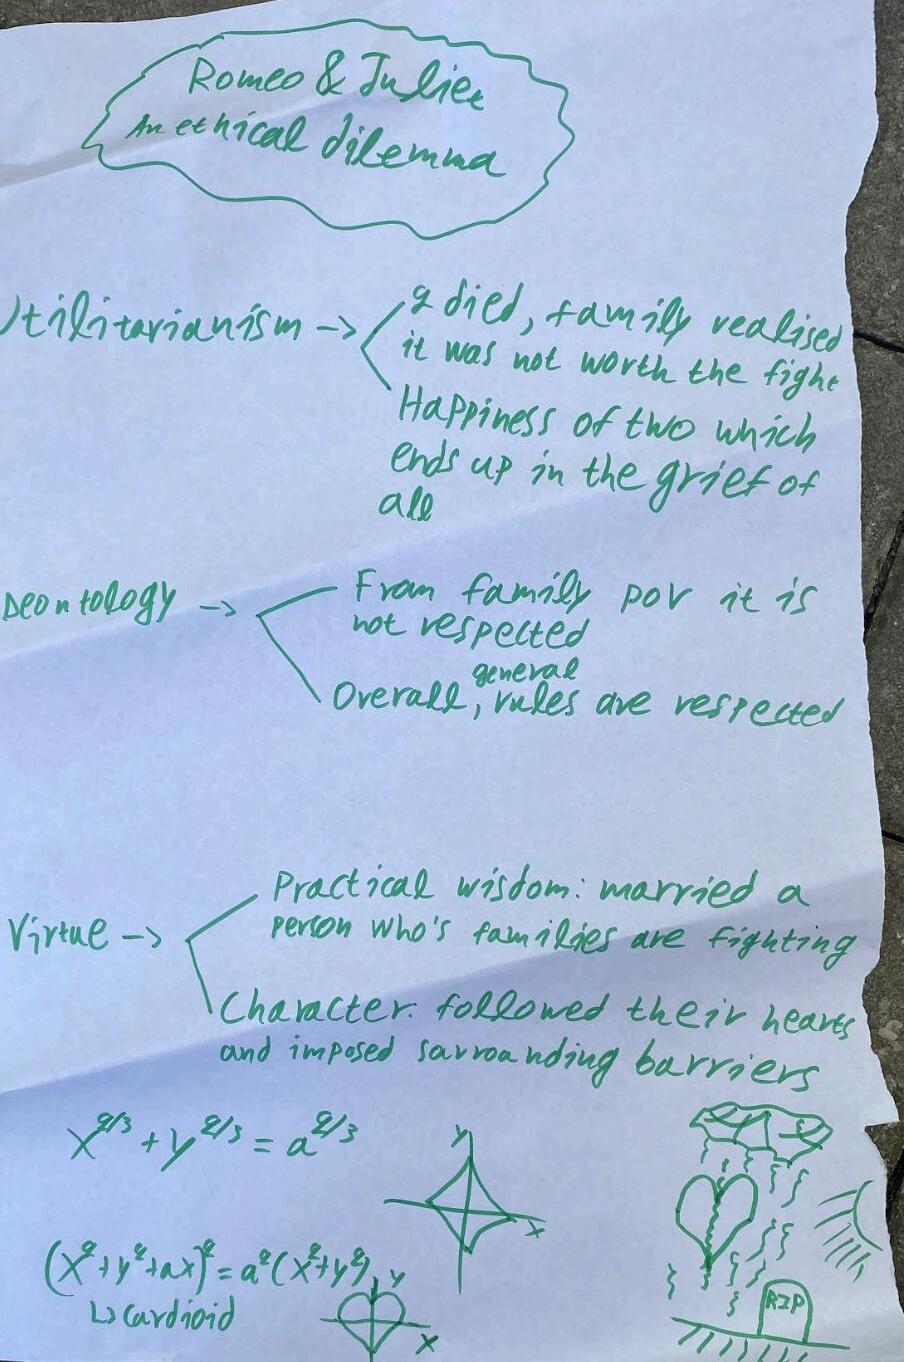 Romeo & Juliet
An ethical dilemma
Utilitarianism ->
2 died, family realised
it was not worth the fight
Happiness of two which
ends up in the grief of
all
Deontology ->
From family pov it is
not respected
general
Overall, rules are respected
Virtue ->
Practical wisdom: married a
person who's families are fighting
Character: followed their hearts
and imposed sarrounding barriers
x^2/3 + y^2/3 = a^2/3
y
x
(x²+y²+ax)²=a²(x²+y²)
↳cardioid
y
x
RIP